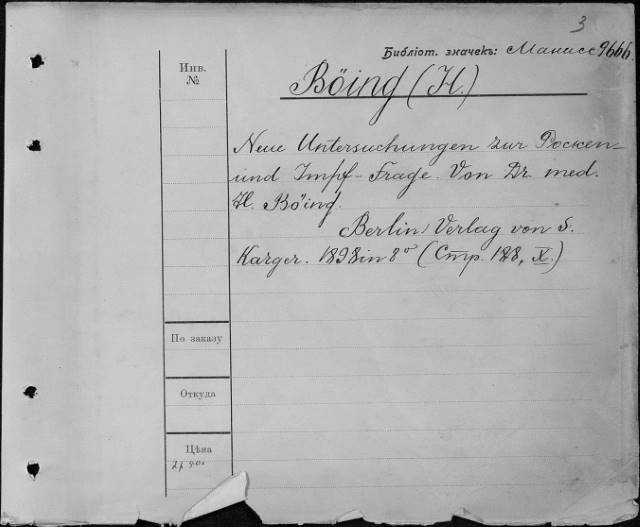 3
Библіот. значекъ: 9666.
Инв.
№
Böing (H.)
Neue Untersuchungen zur Pocken-
und Impf-Frage. Von Dr. med.
H. Böing.
Berlin Verlag von S.
Karger. 1898 in 8° (Стр. 188, X.)
По заказу
Откуда
Цѣна